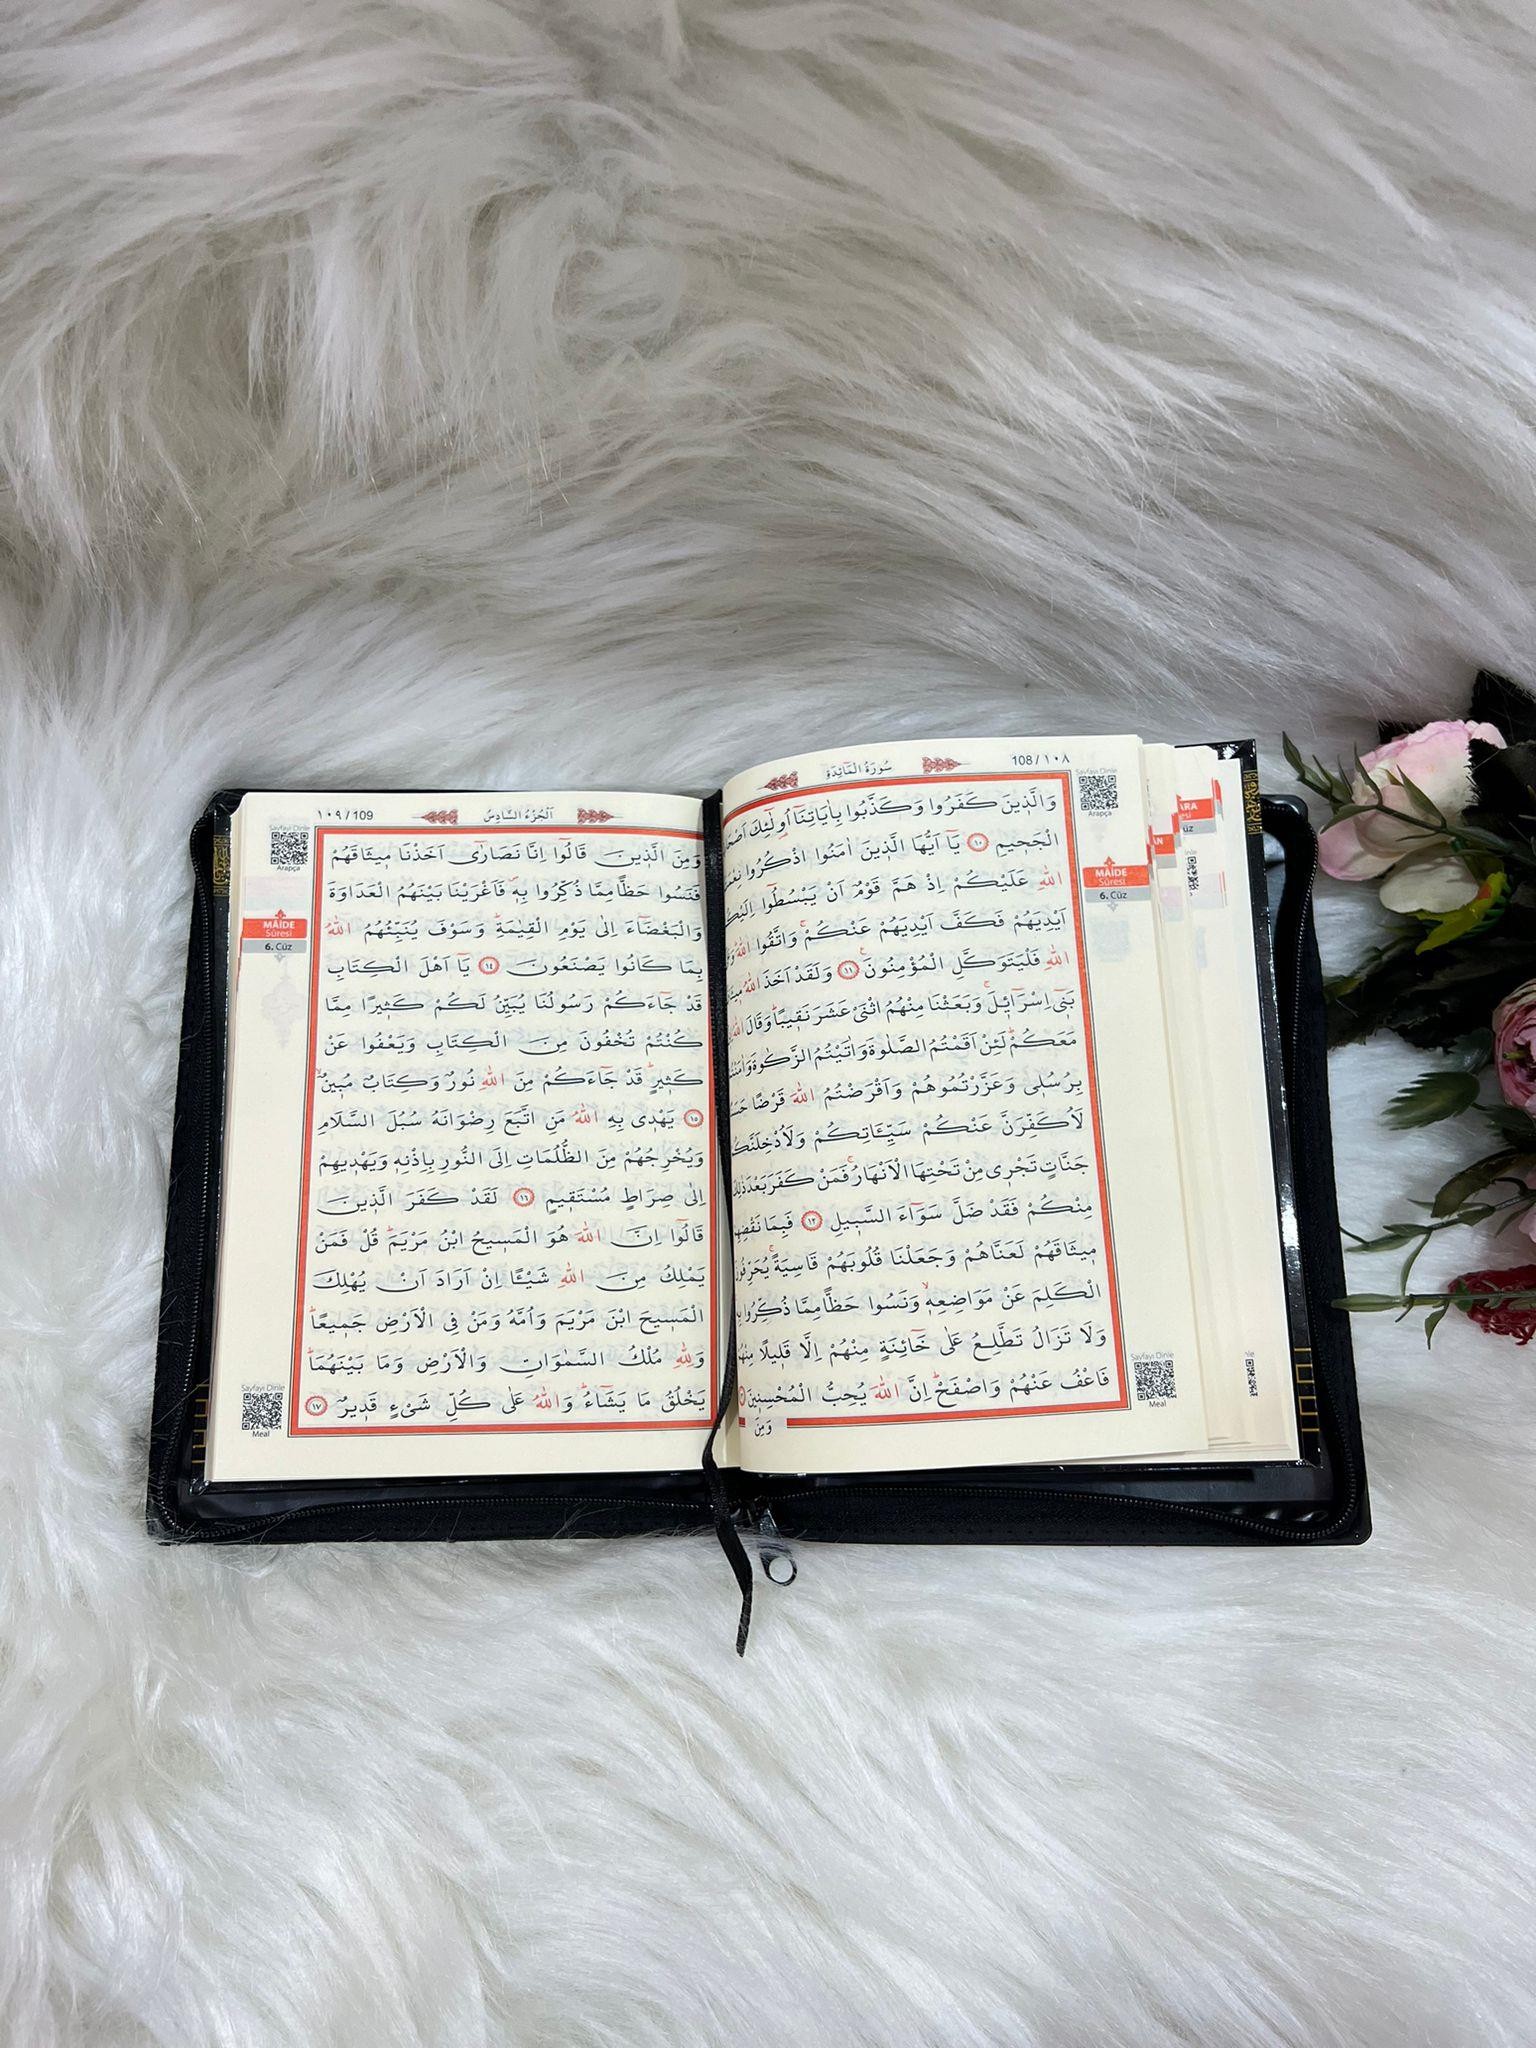 108 / ١٠٨
سُورَةُ الْمَائِدَةِ
Sayfayı Dinle
Arapça
MÂİDE
Sûresi
6. Cüz
وَالَّذ۪ينَ كَفَرُوا وَكَذَّبُوا بِاٰيَاتِنَٓا اُو۬لٰٓئِكَ
الْجَح۪يمِ ﴿١٠﴾ يَٓا اَيُّهَا الَّذ۪ينَ اٰمَنُوا اذْكُرُوا
اللّٰهِ عَلَيْكُمْ اِذْ هَمَّ قَوْمٌ اَنْ يَبْسُطُٓوا
اَيْدِيَهُمْ فَكَفَّ اَيْدِيَهُمْ عَنْكُمْۚ وَاتَّقُوا اللّٰهَۜ
اللّٰهِ فَلْيَتَوَكَّلِ الْمُؤْمِنُونَ۟ ﴿١١﴾ وَلَقَدْ اَخَذَ اللّٰهُ
بَن۪ٓي اِسْرَٓائ۪لَۚ وَبَعَثْنَا مِنْهُمُ اثْنَيْ عَشَرَ نَق۪يبًاۜ وَقَالَ اللّٰهُ
مَعَكُمْۜ لَئِنْ اَقَمْتُمُ الصَّلٰوةَ وَاٰتَيْتُمُ الزَّكٰوةَ
بِرُسُل۪ي وَعَزَّرْتُمُوهُمْ وَاَقْرَضْتُمُ اللّٰهَ قَرْضًا
لَاُكَفِّرَنَّ عَنْكُمْ سَيِّـَٔاتِكُمْ
جَنَّاتٍ تَجْر۪ي مِنْ تَحْتِهَا الْاَنْهَارُۚ فَمَنْ كَفَرَ بَعْدَ ذٰلِكَ
مِنْكُمْ فَقَدْ ضَلَّ سَوَٓاءَ السَّب۪يلِ ﴿١٢﴾ فَبِمَا
م۪يثَاقَهُمْ لَعَنَّاهُمْ وَجَعَلْنَا قُلُوبَهُمْ قَاسِيَةًۚ
الْكَلِمَ عَنْ مَوَاضِعِه۪ۙ وَنَسُوا حَظًّا مِمَّا ذُكِّرُوا
وَلَا تَزَالُ تَطَّلِعُ عَلٰى خَٓائِنَةٍ مِنْهُمْ اِلَّا قَل۪يلًا
فَاعْفُ عَنْهُمْ وَاصْفَحْۜ اِنَّ اللّٰهَ يُحِبُّ الْمُحْسِن۪ينَ
وَمِنَ
Sayfayı Dinle
Meal
١٠٩ / 109
اَلْجُزْءُ السَّادِسُ
Sayfayı Dinle
Arapça
MÂİDE
Sûresi
6. Cüz
وَمِنَ الَّذ۪ينَ قَالُٓوا اِنَّا نَصَارٰٓى اَخَذْنَا م۪يثَاقَهُمْ
فَنَسُوا حَظًّا مِمَّا ذُكِّرُوا بِه۪ۖ فَاَغْرَيْنَا بَيْنَهُمُ الْعَدَاوَةَ
وَالْبَغْضَٓاءَ اِلٰى يَوْمِ الْقِيٰمَةِۜ وَسَوْفَ يُنَبِّئُهُمُ اللّٰهُ
بِمَا كَانُوا يَصْنَعُونَ ﴿١٤﴾ يَٓا اَهْلَ الْكِتَابِ
قَدْ جَٓاءَكُمْ رَسُولُنَا يُبَيِّنُ لَكُمْ كَث۪يرًا مِمَّا
كُنْتُمْ تُخْفُونَ مِنَ الْكِتَابِ وَيَعْفُوا عَنْ
كَث۪يرٍۜ قَدْ جَٓاءَكُمْ مِنَ اللّٰهِ نُورٌ وَكِتَابٌ مُب۪ينٌۙ
﴿١٥﴾ يَهْد۪ي بِهِ اللّٰهُ مَنِ اتَّبَعَ رِضْوَانَهُ سُبُلَ السَّلَامِ
وَيُخْرِجُهُمْ مِنَ الظُّلُمَاتِ اِلَى النُّورِ بِاِذْنِه۪ وَيَهْد۪يهِمْ
اِلٰى صِرَاطٍ مُسْتَق۪يمٍ ﴿١٦﴾ لَقَدْ كَفَرَ الَّذ۪ينَ
قَالُٓوا اِنَّ اللّٰهَ هُوَ الْمَس۪يحُ ابْنُ مَرْيَمَۜ قُلْ فَمَنْ
يَمْلِكُ مِنَ اللّٰهِ شَيْـًٔا اِنْ اَرَادَ اَنْ يُهْلِكَ
الْمَس۪يحَ ابْنَ مَرْيَمَ وَاُمَّهُ وَمَنْ فِي الْاَرْضِ جَم۪يعًاۜ
وَلِلّٰهِ مُلْكُ السَّمٰوَاتِ وَالْاَرْضِ وَمَا بَيْنَهُمَاۜ
يَخْلُقُ مَا يَشَٓاءُۜ وَاللّٰهُ عَلٰى كُلِّ شَيْءٍ قَد۪يرٌ ﴿١٧﴾
Sayfayı Dinle
Meal